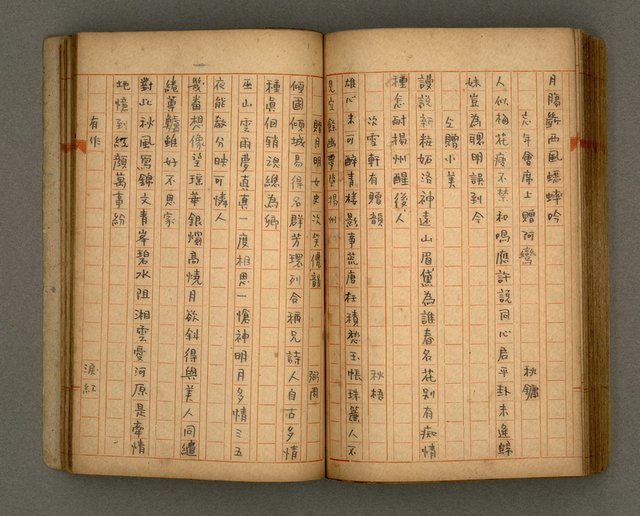 月朧斷西風蟋蟀吟
忘年會席上贈阿鸞 秋鏞
人似梅花瘦不禁和鳴應許說同心君平卦未逢
妹豈為聰明誤到今
全贈小美
謾說新粧妬洛神遠山眉黛為誰春名花別有痴情
種怎耐揚州醒後人
次雲軒有贈韻 秋梧
雄心未可醉青樓影事荒唐枉積愁玉帳珠簾人不
見空餘幽夢
贈月明女史次笑儂韻 弼雨
傾國傾城易得名群芳環列合稱兄詩人自古多情
種真個銷總為卿
巫山雲雨夢真真一度相思一愴神明月多情三五
夜能教分映可憐人
幾番想像登瑤華銀燭高燒月欲斜得與美人同繾
綣蓴鱸雖好不思家
對此秋風寫錦文青峯碧水阻湘雲憂河原是牽情
地憶到紅顏萬事紛
有作 淚紅